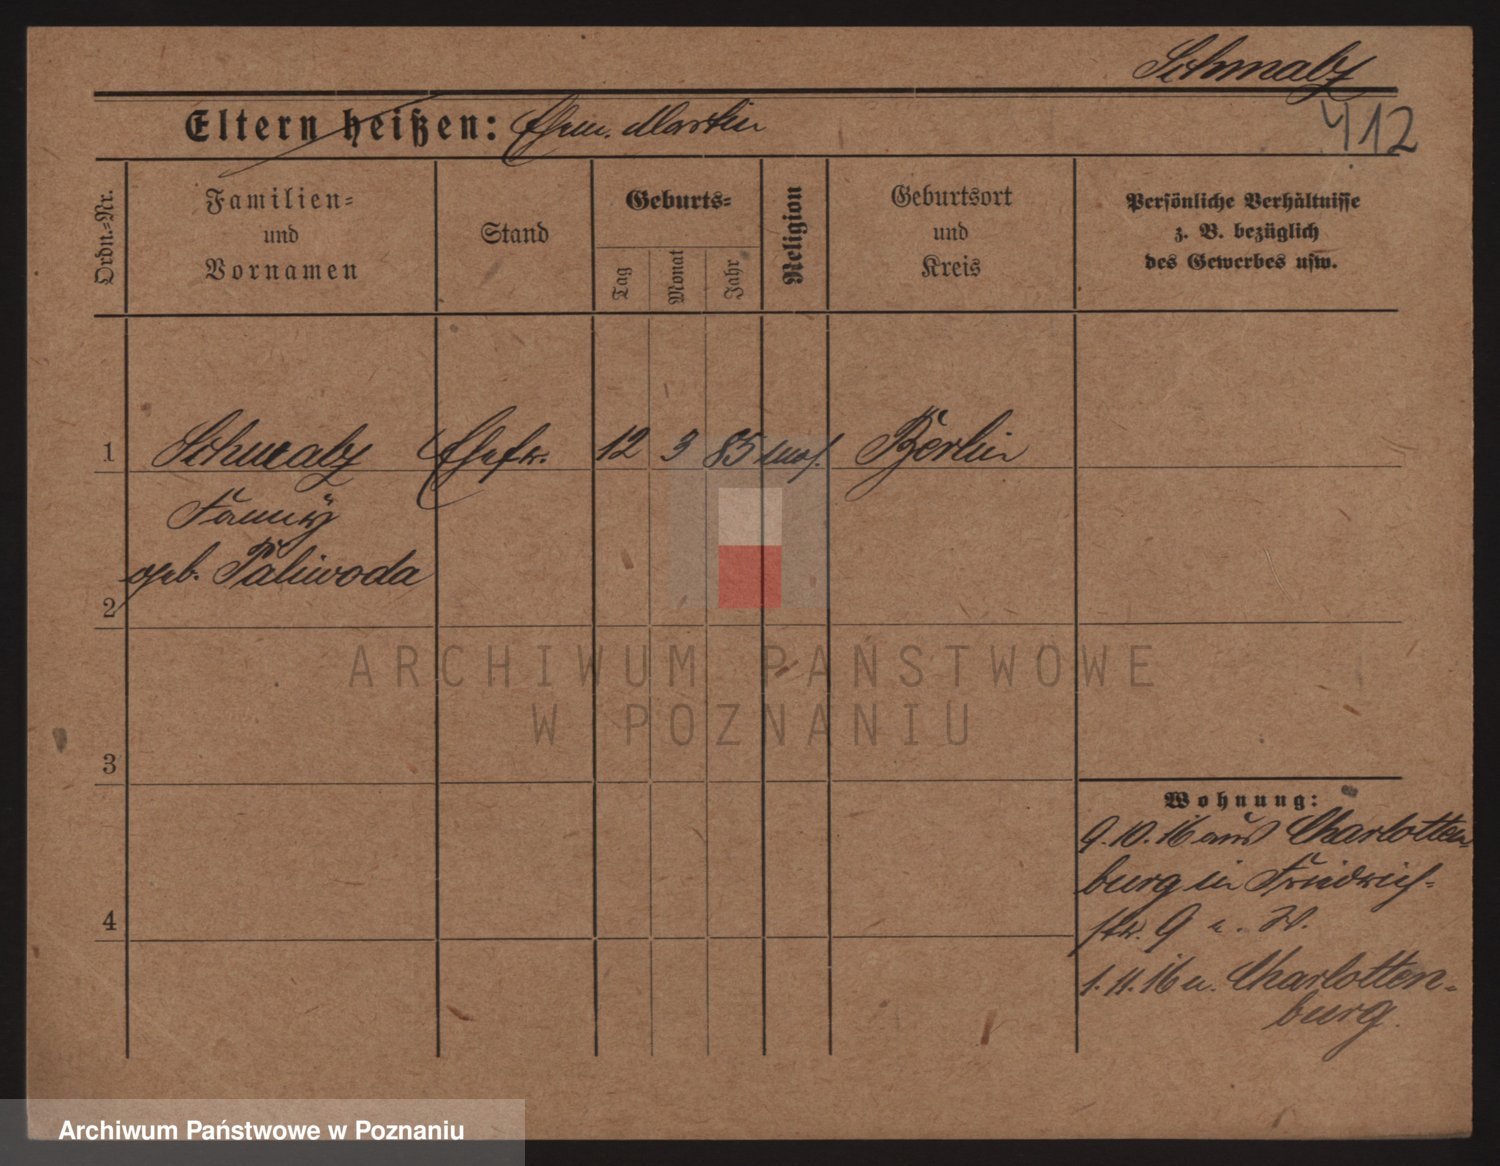 Schmalz
412
Eltern heißen: Ehem. Martin
Ordn.-Nr.
Familien-
und
Vornamen
Stand
Geburts-
Tag
Monat
Jahr
Religion
Geburtsort
und
Kreis
Persönliche Verhältnisse
z. B. bezüglich
des Gewerbes usw.
1 Schmalz Ehefr. 12 3 85 mos. Berlin
Fanny
geb. Paliwoda
2
ARCHIWUM PAŃSTWOWE
W POZNANIU
3
Wohnung:
9.10.16 aus Charlotten
burg in Friedrich-
4
str. 9
1.11.16 n. Charlotten-
burg.
Archiwum Państwowe w Poznaniu